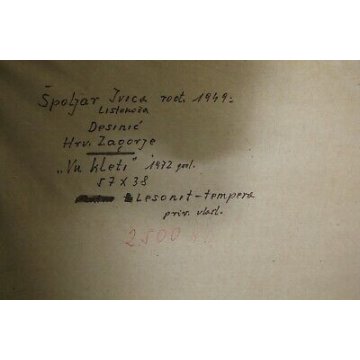 Špoljar Ivica rođ. 1949.
Listonoša
Desinić
Hrv. Zagorje
"Vu kleti" 1972 god.
57 x 38
Lesonit-tempera
priv. vlasl.
2500